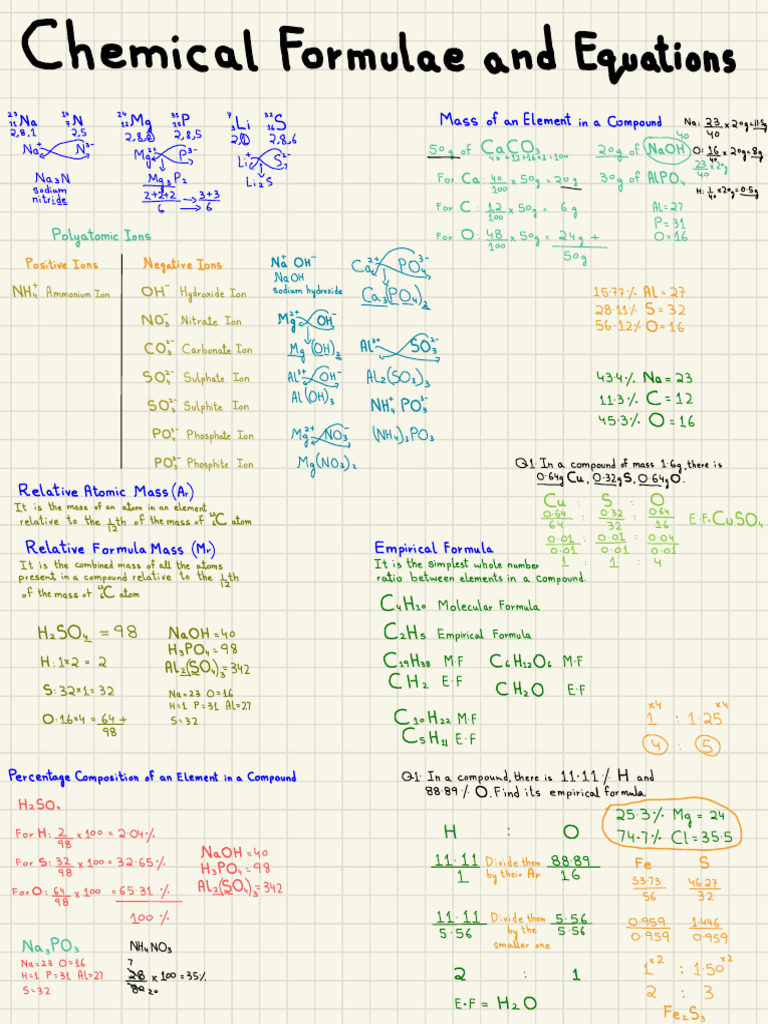 Chemical Formulae and Equations
²³₁₁Na ¹⁴₇N ²⁴₁₂Mg ³¹₁₅P ⁷₃Li ³²₁₆S
2,8,1 2,5 2,8,2 2,8,5 2,1 2,8,6
Na⁺ N³⁻ Mg²⁺ P³⁻ Li⁺ S²⁻
Na₃N Mg₃P₂ Li₂S
sodium
nitride
2+2+2 → 3+3
6 → 6
Polyatomic Ions
Positive Ions
NH₄⁺ Ammonium Ion
Negative Ions
OH⁻ Hydroxide Ion
NO₃⁻ Nitrate Ion
CO₃²⁻ Carbonate Ion
SO₄²⁻ Sulphate Ion
SO₃²⁻ Sulphite Ion
PO₄³⁻ Phosphate Ion
PO₃³⁻ Phosphite Ion
Na⁺ OH⁻
NaOH
sodium hydroxide
Mg²⁺ OH⁻
Mg(OH)₂
Al³⁺ OH⁻
Al(OH)₃
Mg²⁺ NO₃⁻
Mg(NO₃)₂
Ca²⁺ PO₄³⁻
Ca₃(PO₄)₂
Al³⁺ SO₃²⁻
Al₂(SO₃)₃
NH₄⁺ PO₃³⁻
(NH₄)₂PO₃
Mass of an Element in a Compound
50g of CaCO₃
40+12+16×2=100
For Ca: 40/100 ×50g=20g
For C: 12/100 ×50g= 6g
For O: 48/100 ×50g= 24g +
50g
40
20g of NaOH
30g of AlPO₄
Al=27
P=31
O=16
Na: 23/40 ×20g=11.5g
O: 16/40 ×20g=8g
23/40 ×20g
H: 1/40 ×20g=0.5g
15.77% Al=27
28.11% S=32
56.12% O=16
43.4% Na=23
11.3% C=12
45.3% O=16
Q1 In a compound of mass 1.6g, there is
0.64g Cu, 0.32g S, 0.64g O.
Cu : S : O
0.64/64 : 0.32/32 : 0.64/16 E.F=CuSO₄
0.01/0.01 : 0.01/0.01 : 0.04/0.01
1 : 1 : 4
Relative Atomic Mass (Ar)
It is the mass of an atom in an element
relative to the 1/12 th of the mass of ¹²₆C atom
Relative Formula Mass (Mr)
It is the combined mass of all the atoms
present in a compound relative to the 1/12 th
of the mass of ¹²₆C atom
H₂SO₄ = 98
H: 1×2 = 2
S: 32×1= 32
O: 16×4 = 64 +
98
NaOH=40
H₃PO₄=98
Al₂(SO₄)₃=342
Na=23 O=16
H=1 P=31 Al=27
S=32
Empirical Formula
It is the simplest whole number
ratio between elements in a compound.
C₄H₁₀ Molecular Formula
C₂H₅ Empirical Formula
C₁₉H₃₈ M.F C₆H₁₂O₆ M.F
CH₂ E.F CH₂O E.F
C₁₀H₂₂ M.F
C₅H₁₁ E.F
×4 ×4
1 : 1.25
4 : 5
Percentage Composition of an Element in a Compound
H₂SO₄
For H: 2/98 ×100 = 2.04%
For S: 32/98 ×100 = 32.65%
For O: 64/98 ×100 = 65.31 %
100 %
NaOH=40
H₃PO₄=98
Al₂(SO₄)₃=342
Na₃PO₃
Na=23 O=16
H=1 P=31 Al=27
S=32
NH₄NO₃
7
28/80 ×100=35%
20
Q1. In a compound, there is 11.11% H and
88.89% O. Find its empirical formula
H : O
11.11/1 Divide them by their Ar 88.89/16
11.11/5.56 Divide them by the smaller one 5.56/5.56
2 : 1
E.F = H₂O
25.3% Mg = 24
74.7% Cl=35.5
Fe S
53.73/56 46.27/32
0.959/0.959 1.446/0.959
1 ×2 : 1.50 ×2
2 : 3
Fe₂S₃